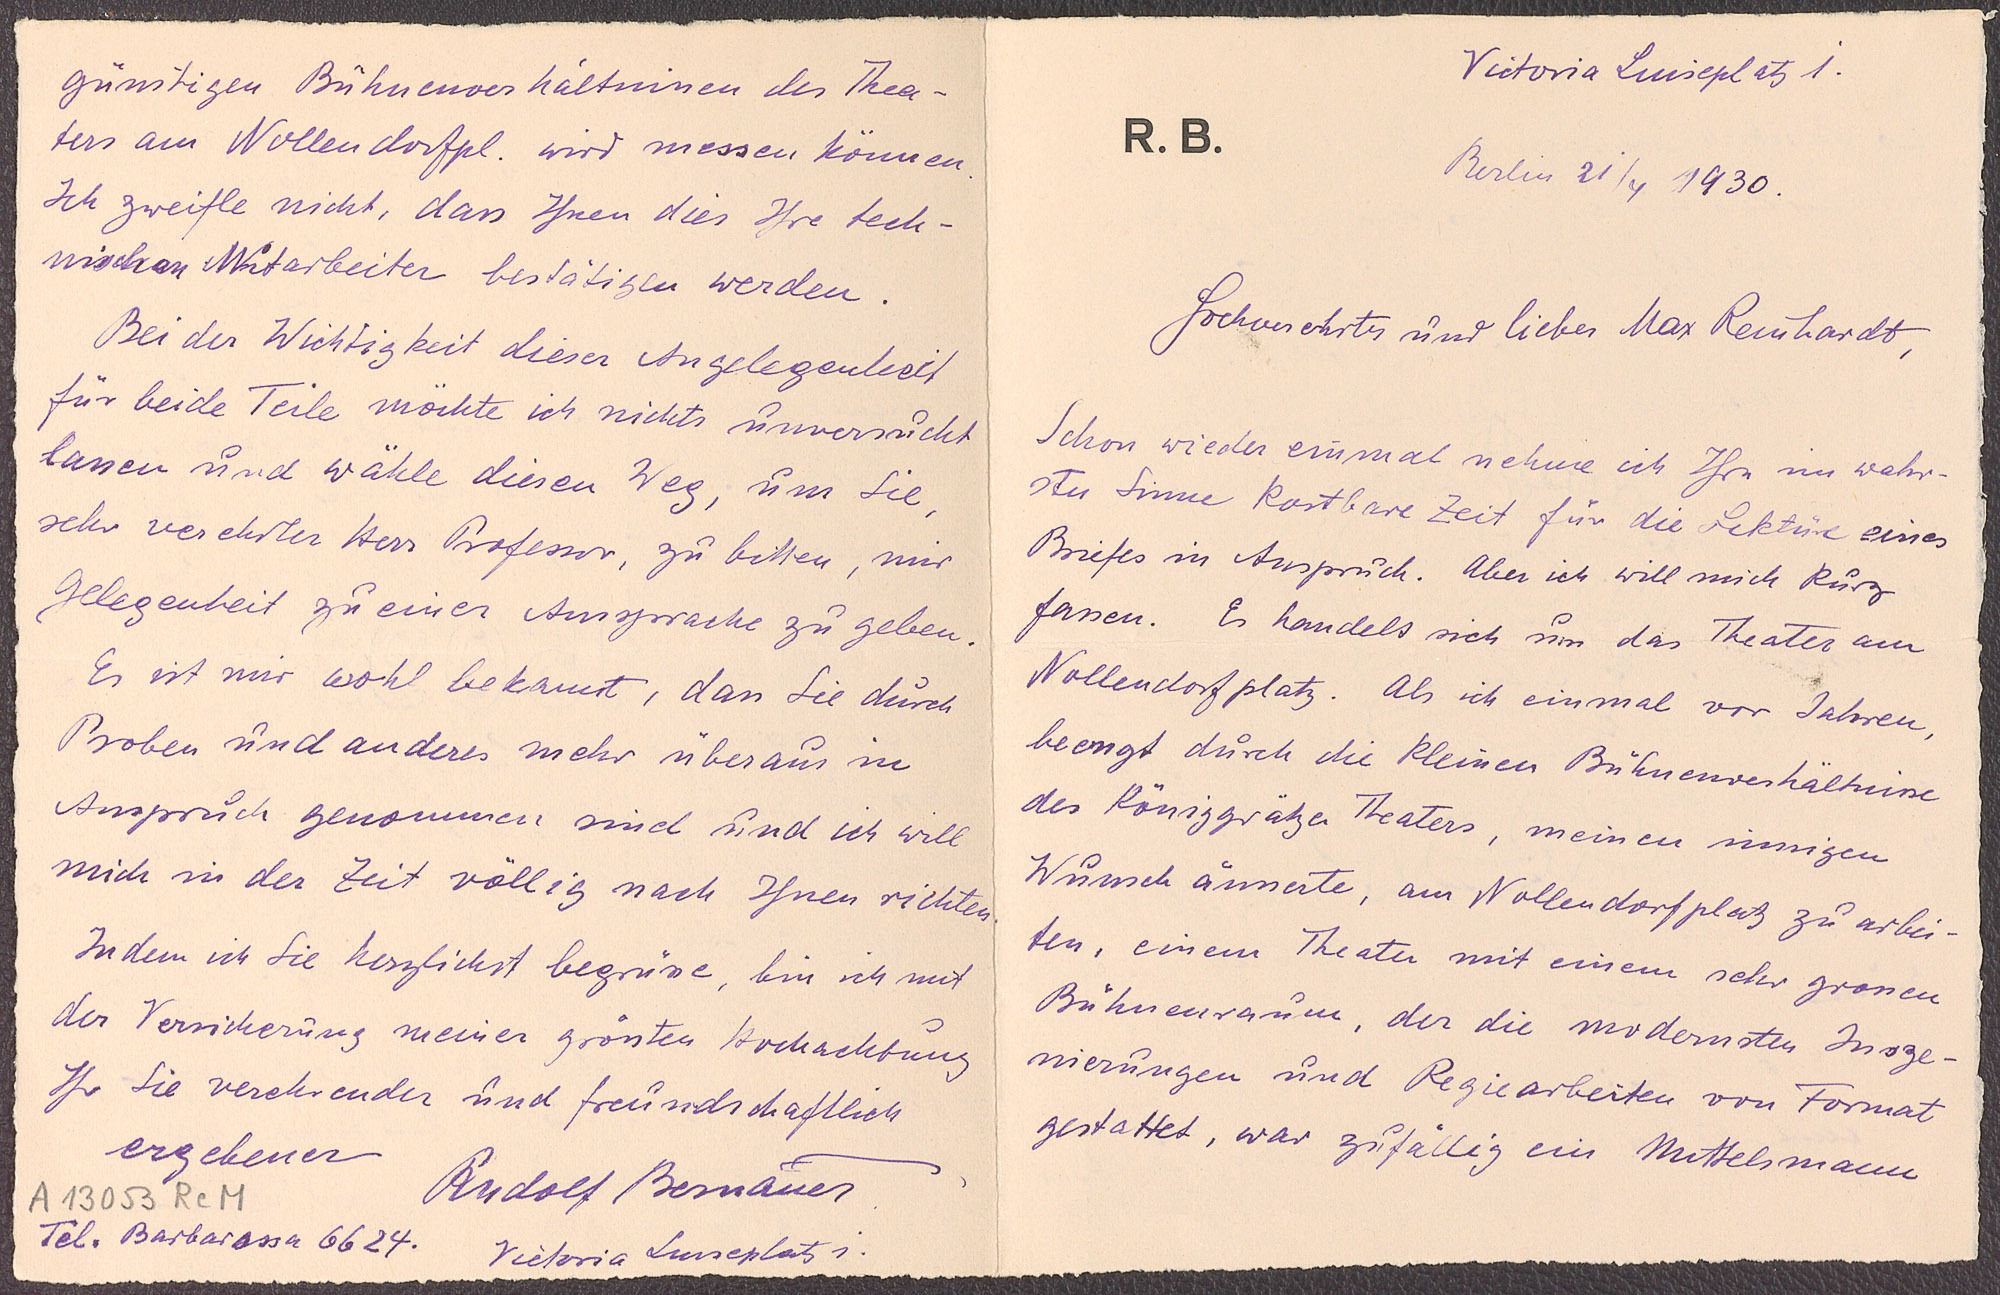 Victoria Luiseplatz 1.
R. B.
Berlin 21/4 1930.
Hochverehrter und lieber Max Reinhardt,
Schon wieder einmal nehme ich Ihre im wahr-
sten Sinne kostbare Zeit für die Lektüre eines
Briefes in Anspruch. Aber ich will mich kurz
fassen. Es handelt sich um das Theater am
Nollendorfplatz. Als ich einmal vor Jahren,
beengt durch die kleinen Bühnenverhältnisse
des Königgrätzer Theaters, meinen innigen
Wunsch äusserte, am Nollendorfplatz zu arbei-
ten, einem Theater mit einem sehr grossen
Bühnenraum, der die modernsten Insze-
nierungen und Regiearbeiten von Format
gestattet, war zufällig ein Mittelsmann
günstigen Bühnenverhältnissen des Thea-
ters am Nollendorfpl. wird messen können.
Ich zweifle nicht, dass Ihnen dies Ihre tech-
nischen Mitarbeiter bestätigen werden.
Bei der Wichtigkeit dieser Angelegenheit
für beide Teile möchte ich nichts unversucht
lassen und wähle diesen Weg, um Sie,
sehr verehrter Herr Professor, zu bitten, mir
Gelegenheit zu einer Aussprache zu geben.
Es ist mir wohl bekannt, dass Sie durch
Proben und anderes mehr überaus in
Anspruch genommen sind und ich will
mich in der Zeit völlig nach Ihnen richten.
Indem ich Sie herzlichst begrüsse, bin ich mit
der Versicherung meiner grössten Hochachtung
Ihr Sie verehrender und freundschaftlich
ergebener
Rudolf Bernauer
A 13053 ReM
Tel. Barbarossa 6624.
Victoria Luiseplatz 1.